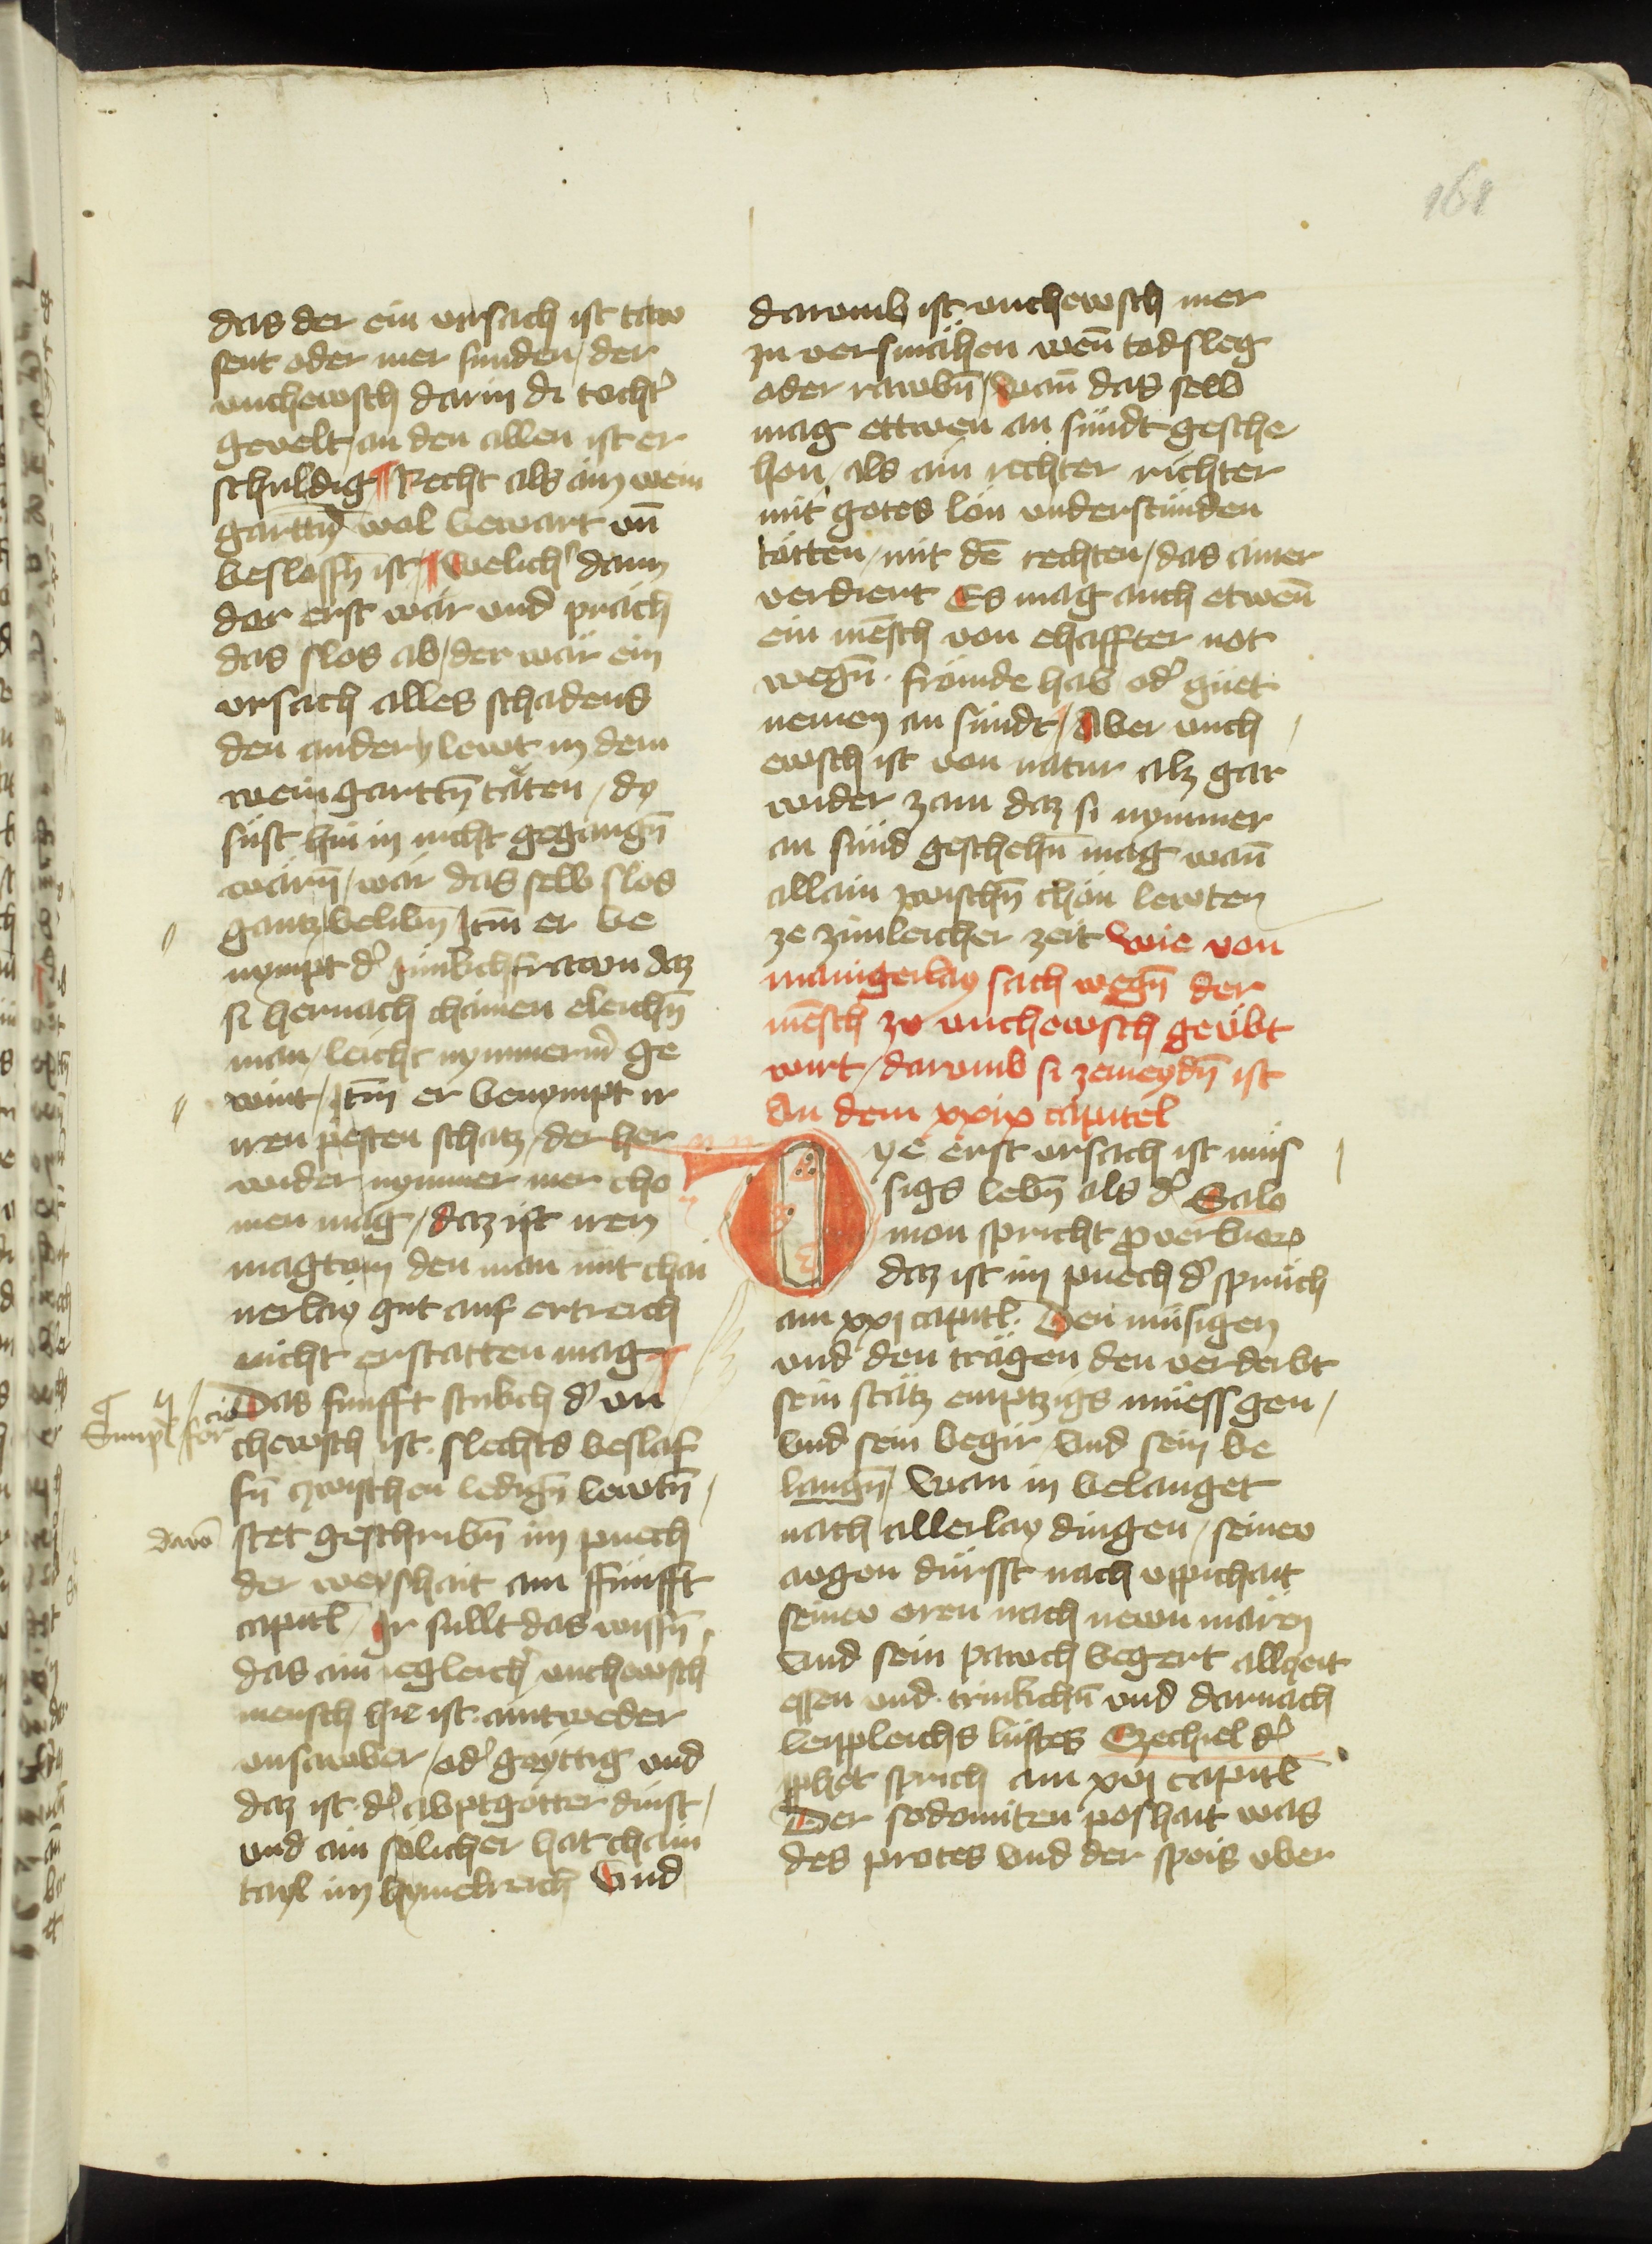 161
das der ein vrsach ist taw
sent oder mer sunden / der
vnchewsch darin di tocht̾
gevelt / an den allen ist er
schuldig ¶ Recht als ain wein
gartt̄n wol bewart vn̄
beslossn̄ ist / ¶ welich̾ dann
der erst wär vnd präch
das slos ab / der wär ein
vrsach alles schadens
den andern lewt in dem
weingarttn̄ täten / dy
süst hin in nicht gegangn̄
wärn̄ / wär das selb slos
gantz belibn̄ Itm̄ er be
nympt d̾ junkchfrawn daz
si hernach chainen eleichn̄
man / leicht nymmerm̾ ge
wint / Itm̄ er benympt ir
iren pesten schatz / der her
wider nymmer mer cho
men mag / daz ist iren
magtom den man mit chai
nerlay gut auf ertreich
nicht erstatten mag
Das funfft stukch d̾ vn
chewsch ist slechts beslaf
fn̄ zwischen ledign̄ lewtn̄ /
dauō stet geschribn̄ im puech
der weyshait am ffünfft
capitl̄ / Ir sullt das wissn̄
das ain iegleich̾ vnchewsch
mensch hie ist aintweder
vnsawber / od̾ geyttig vnd
daz ist d̾ abptgötter dinst /
vnd ain sölicher hat chain
tayl im hymelreich Vnd
Simpl̄ forcio
darumb ist vnchewsch mer
zu versmähen wen̄ todsleg
oder rawbn̄ / wan̄ das selb
mag ettwen an sündt gesche
hen / als ain rechter richter
mit gotes lön vnderstünden
tötten / mit dē rechten / das ainer
verdient Es mag auch etwen̄
ein mēsch von ehaffter not
wegn̄ frömde hab od̾ güet
nemen an sündt / Aber vnch
ewsch ist von natur alz gar
wider zam daz si nymmer
an sünd geschehn̄ mag wan̄
allain zwischn̄ chön lewten
ze zimleicher zeit Wie von
mainigerlay sach wegn̄ der
mēsch zu vnchewsch geübt
wirt / darumb si zemeydn̄ ist
An dem xxix capitel
Dye erst vrsach ist müs
sigs lebn̄ als d̾ Salo
mon spricht proverbiorum
daz ist im puech d̾ sprüch
am xxj capitl̄ Den müsigen
vnd den trägen den verderbt
sein stätz emptzigs müessgen /
Vnd sein begir Vnd sein be
langn̄ / Wan in belanget
nach allerlay dingen / seinew
awgen dürsst nach vppichait
seinew oren nach newn mären
Vnd sein pawch begert allzeit
essen vnd trinkchn̄ vnd darnach
leipleichs lustes Ezechiel d̾
prophet sprich am xvj capitl̄
Der sodomiten poshait was
des protes Vnd der speis vber